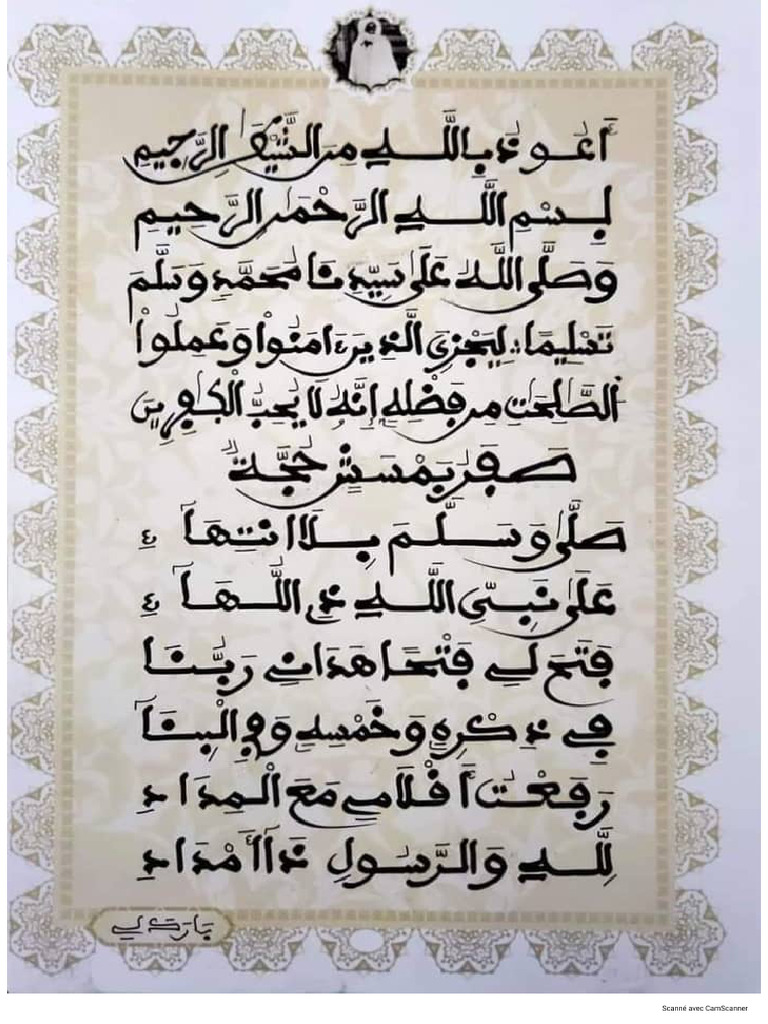 أعوذ بالله من الشيطٰن الرجيم
بسم الله الرحمٰن الرحيم
وصلى الله على سيدنا محمد وسلم
تسليما: ليجزي الذين ءامنوا وعملوا
الصٰلحٰت من فضله إنه لا يحب الكٰفرين
صفر بمسش حجة
صلى وسلم بلا انتهاء
على نبي الله ذي اللهاء
فتح لي فتحا هداني ربنا
في ذكره وخمسه وفي البنا
رفعت أقلامي مع المداد
لله والرسول ذا أمداد
بارك لي
Scanné avec CamScanner